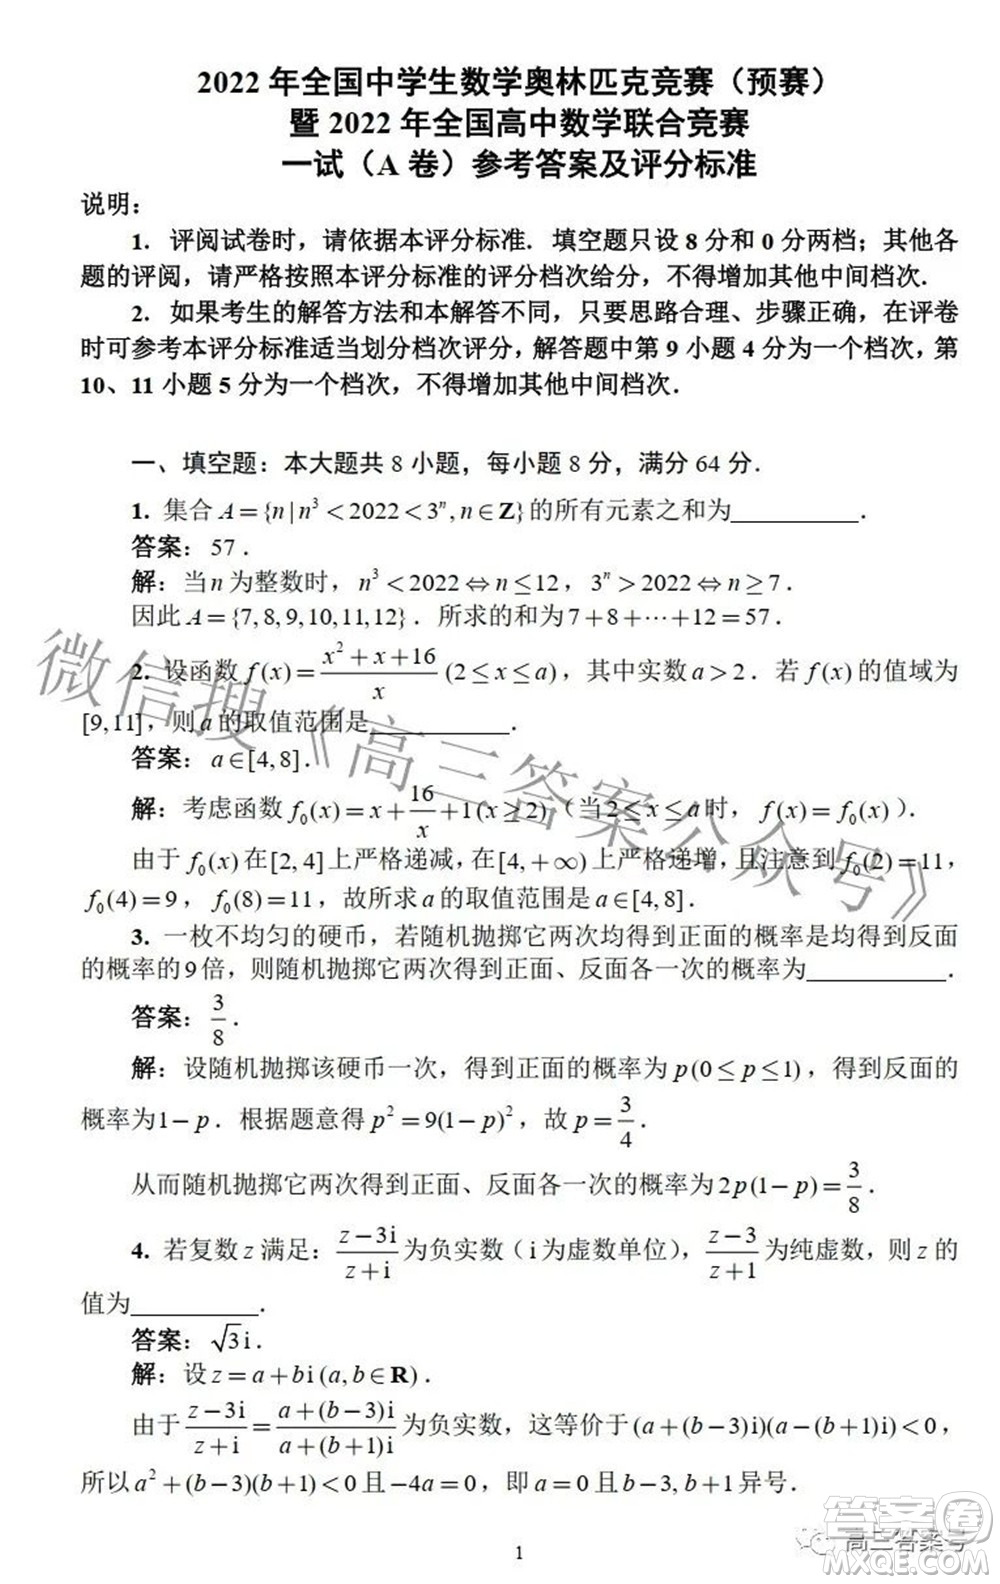 2022 年全国中学生数学奥林匹克竞赛（预赛）
暨 2022 年全国高中数学联合竞赛
一试（A 卷）参考答案及评分标准
说明：
1. 评阅试卷时，请依据本评分标准．填空题只设 8 分和 0 分两档；其他各
题的评阅，请严格按照本评分标准的评分档次给分，不得增加其他中间档次．
2. 如果考生的解答方法和本解答不同，只要思路合理、步骤正确，在评卷
时可参考本评分标准适当划分档次评分，解答题中第 9 小题 4 分为一个档次，第
10、11 小题 5 分为一个档次，不得增加其他中间档次．
一、填空题：本大题共 8 小题，每小题 8 分，满分 64 分．
1. 集合 A = {n | n³ < 2022 < 3ⁿ, n ∈ Z} 的所有元素之和为__________．
答案：57．
解：当 n 为整数时，n³ < 2022 ⇔ n ≤ 12，3ⁿ > 2022 ⇔ n ≥ 7．
因此 A = {7, 8, 9, 10, 11, 12}．所求的和为 7 + 8 + ⋯ + 12 = 57．
2. 设函数 f(x) = (x² + x + 16)/x (2 ≤ x ≤ a)，其中实数 a > 2．若 f(x) 的值域为
[9, 11]，则 a 的取值范围是__________．
答案：a ∈ [4, 8]．
解：考虑函数 f₀(x) = x + 16/x + 1 (x ≥ 2)（当 2 ≤ x ≤ a 时，f(x) = f₀(x)）．
由于 f₀(x) 在 [2, 4] 上严格递减，在 [4, +∞) 上严格递增，且注意到 f₀(2) = 11，
f₀(4) = 9，f₀(8) = 11，故所求 a 的取值范围是 a ∈ [4, 8]．
3. 一枚不均匀的硬币，若随机抛掷它两次均得到正面的概率是均得到反面
的概率的 9 倍，则随机抛掷它两次得到正面、反面各一次的概率为__________．
答案：3/8．
解：设随机抛掷该硬币一次，得到正面的概率为 p (0 ≤ p ≤ 1)，得到反面的
概率为 1 − p．根据题意得 p² = 9(1 − p)²，故 p = 3/4．
从而随机抛掷它两次得到正面、反面各一次的概率为 2p(1 − p) = 3/8．
4. 若复数 z 满足：(z − 3i)/(z + i) 为负实数（i 为虚数单位），(z − 3)/(z + 1) 为纯虚数，则 z 的
值为__________．
答案：√3 i．
解：设 z = a + bi (a, b ∈ R)．
由于 (z − 3i)/(z + i) = (a + (b − 3)i)/(a + (b + 1)i) 为负实数，这等价于 (a + (b − 3)i)(a − (b + 1)i) < 0，
所以 a² + (b − 3)(b + 1) < 0 且 −4a = 0，即 a = 0 且 b − 3, b + 1 异号．
1
微信搜《高三答案公众号》
高三答案号
答案圈
MXQE.COM